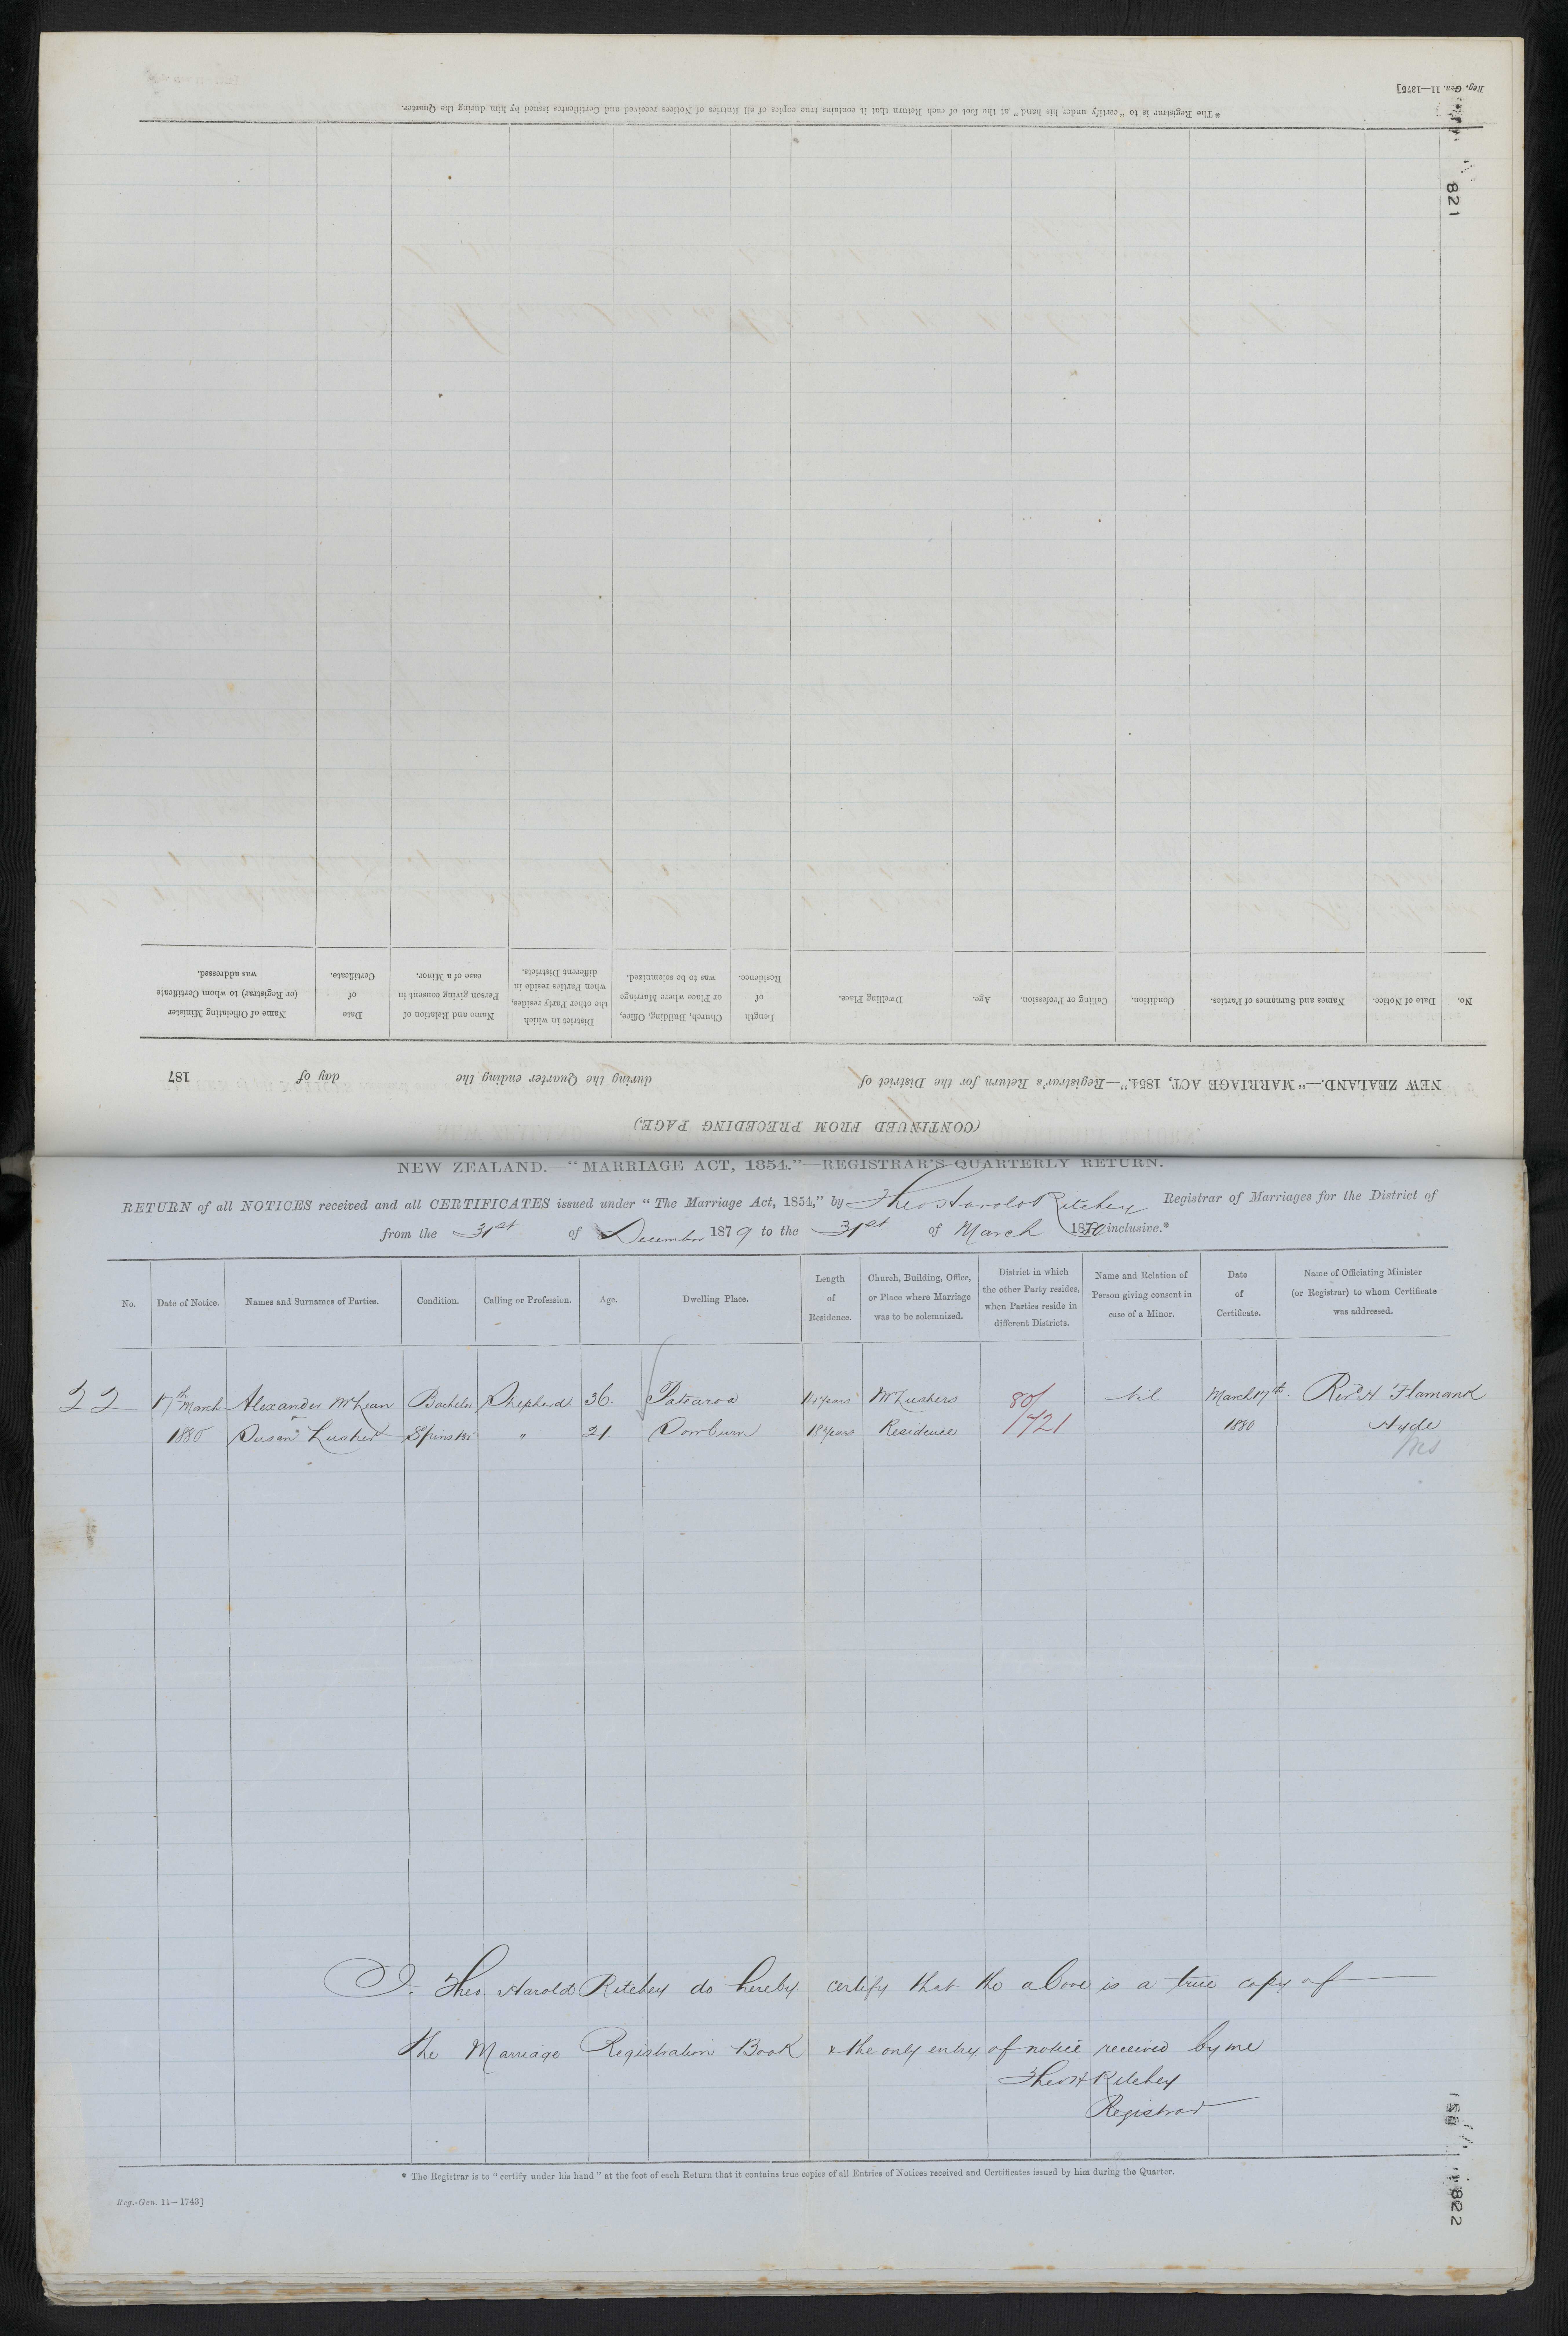 Reg. Gen. 11—1375]
* The Registrar is to "certify under his hand" at the foot of each Return that it contains true copies of all Entries of Notices received and Certificates issued by him during the Quarter.
821
(CONTINUED FROM PRECEDING PAGE.)
NEW ZEALAND.—"MARRIAGE ACT, 1854."—Registrar's Return for the District of during the Quarter ending the day of 187
No. Date of Notice. Names and Surnames of Parties. Condition. Calling or Profession. Age. Dwelling Place. Length of Residence. Church, Building, Office, or Place where Marriage was to be solemnized. District in which the other Party resides, when Parties reside in different Districts. Name and Relation of Person giving consent in case of a Minor. Date of Certificate. Name of Officiating Minister (or Registrar) to whom Certificate was addressed.
NEW ZEALAND.—"MARRIAGE ACT, 1854."—REGISTRAR'S QUARTERLY RETURN.
RETURN of all NOTICES received and all CERTIFICATES issued under "The Marriage Act, 1854," by Theo Harold Ritchey Registrar of Marriages for the District of
from the 31st of December 1879 to the 31st of March 1880 inclusive.*
No. Date of Notice. Names and Surnames of Parties. Condition. Calling or Profession. Age. Dwelling Place. Length of Residence. Church, Building, Office, or Place where Marriage was to be solemnized. District in which the other Party resides, when Parties reside in different Districts. Name and Relation of Person giving consent in case of a Minor. Date of Certificate. Name of Officiating Minister (or Registrar) to whom Certificate was addressed.
22 17th March Alexander McLean Bachelor Shepherd 36. Patearoa 14 years Mr Lushers 80/ Nil March 17th Revd H Flamank
1880 Susan Lusher Spinster " 21. Sowburn 18 years Residence 1721 1880 Hyde
I. Theo Harold Ritchey do hereby certify that the above is a true copy of
the Marriage Registration Book & the only entry of notice received by me
Theo H Ritchey
Registrar
* The Registrar is to "certify under his hand" at the foot of each Return that it contains true copies of all Entries of Notices received and Certificates issued by him during the Quarter.
Reg.-Gen. 11—1743]
822